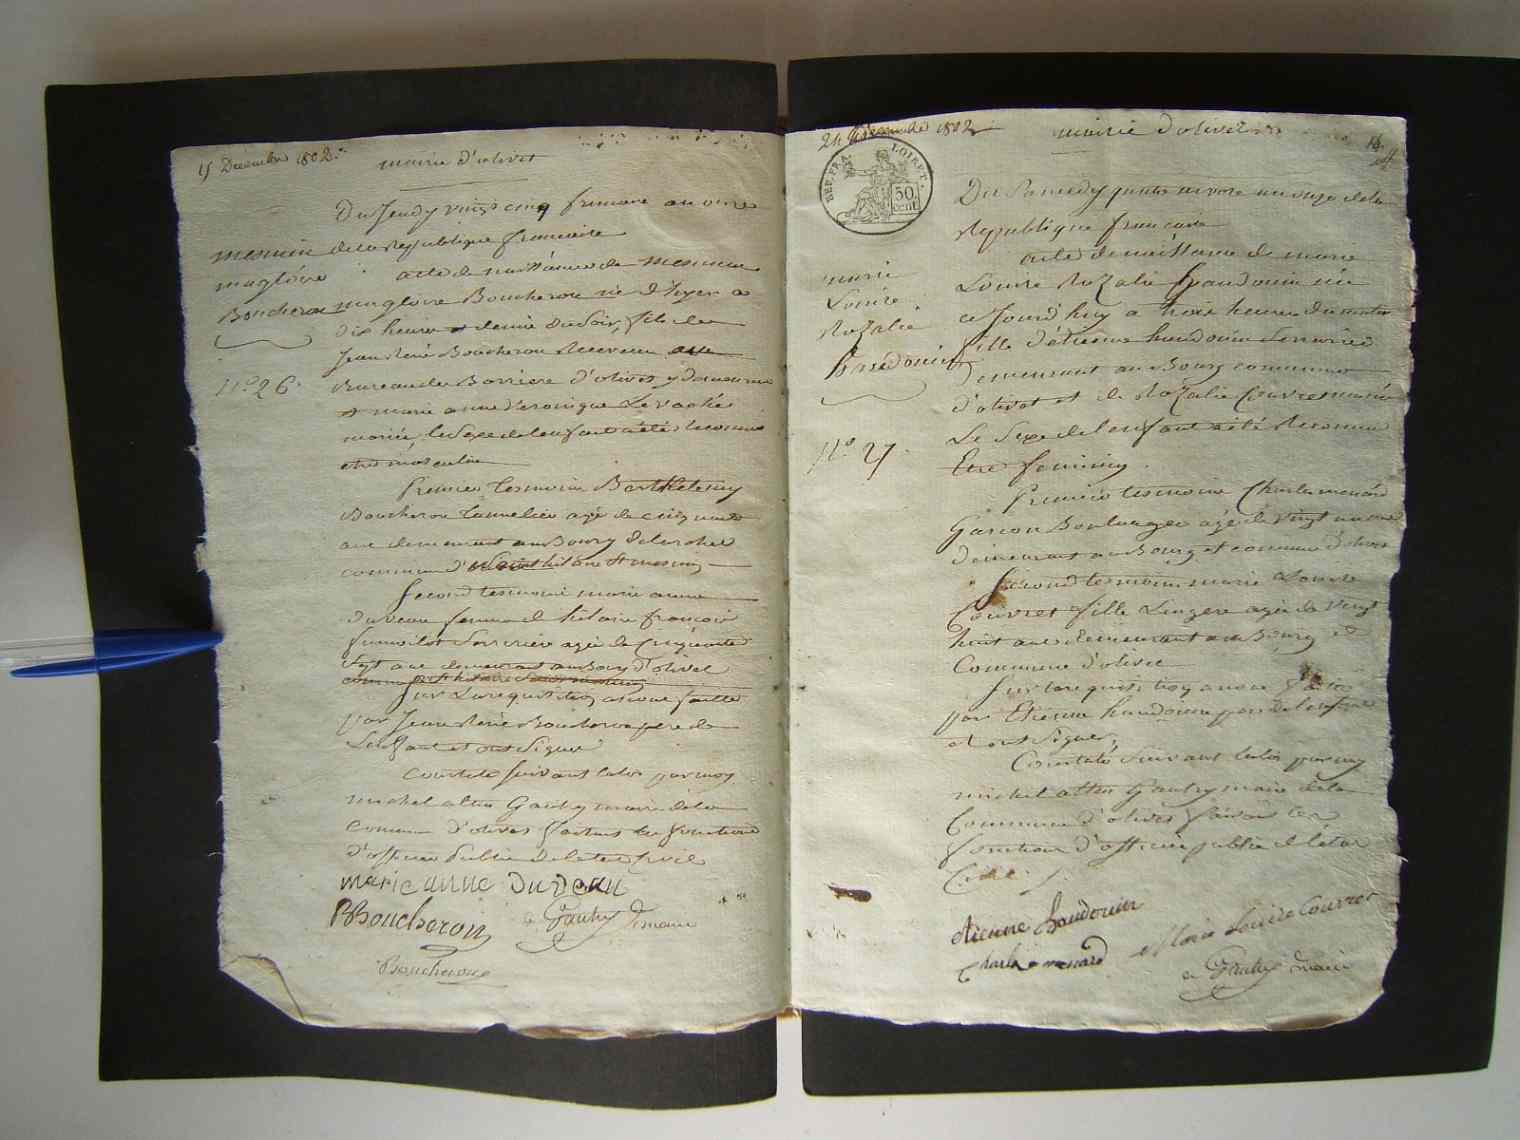 15 Decembre 1802
mairie d'olivet
Du Jeudy vingt cinq frimaire an onze
de la republique francaise
mesmin
magloire
Boucheron
N° 26
acte de naissance de mesmin
magloire Boucheron né d'hyer a
dix heures demie du soir, fils de
Jean René Boucheron Receveur
Bureau de Barriere d'olivet y demeurant
et marie anne Veronique Levaché
mariés, le sexe de lenfant a été reconnu
etre masculin
Premier tesmoin Barthelemy
Boucheron tonnelier agé de cinquante
ans demeurant au Bourg
commune d' St mesmin
second tesmoin marie anne
duveau femme d hilaire francois
agée de cinquante
ans demeurant au Bourg d'olivet
sur la requisition a nous faitte
par Jean René Boucheron pere de
Lenfant et ont signé
Constaté suivant la loi par moy
michel Gautry maire de la
Commune d'olivet faisant les fonctions
d'officier public de letat civil
marie anne duveau
BBoucheron
Gautry maire
Boucheron
24 decembre 1802
mairie d'olivet
REP. FRA. LOIRET.
50
cent
Du Samedy quatre nivose an onze de la
Republique francaise
marie
Louise
Rozalie
haudouin
N° 27
acte de naissance de marie
Louise Rozalie haudouin née
ce Jourd'huy a trois heures du matin
fille d'étienne haudouin
demeurant au Bourg commune
d'olivet et de Rozalie Couvret mariés
Le sexe de lenfant a été reconnu
Etre feminin
Premier tesmoin Charle menard
Garcon Boulanger agé de vingt
demeurant au Bourg et commune d'olivet
second tesmoin marie Louise
Couvret fille Lingere agée de vingt
huit ans demeurant au Bourg et
Commune d'olivet
sur la requisition a nous faitte
par Etienne haudouin pere de lenfant
et ont signé,
Constaté suivant la loi par moy
michel Gautry maire de la
Commune d'olivet faisant les
fonctions d'officier public de létat
Civil
étienne haudouin
Charle menard
Marie Louise Couvret
Gautry maire